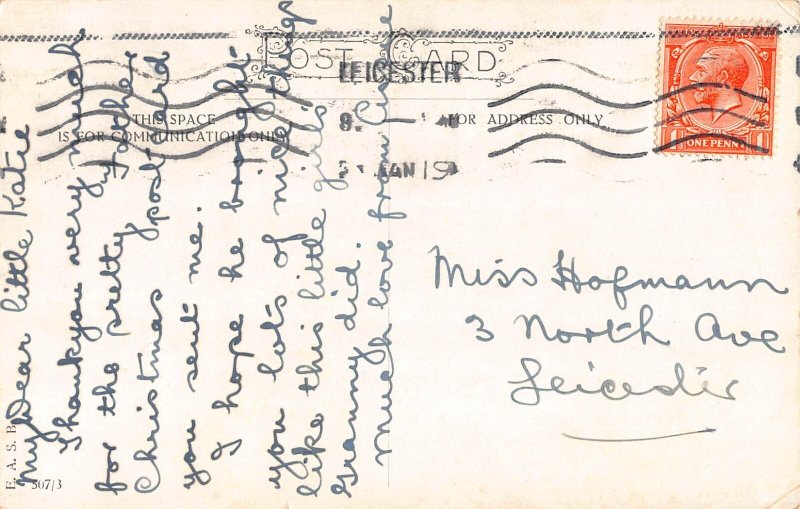 POST CARD
THIS SPACE
IS FOR COMMUNICATION ONLY
FOR ADDRESS ONLY
LEICESTER
JAN 19
ONE PENNY
1
My Dear little Katie
Thankyou very much
for the pretty Father
Christmas post card
you sent me.
I hope he brought
you lots of nice things
like this little girls
Granny did.
Much love from
Miss Hofmann
3 North Ave
Leicester
E. A. S. B.
507/3